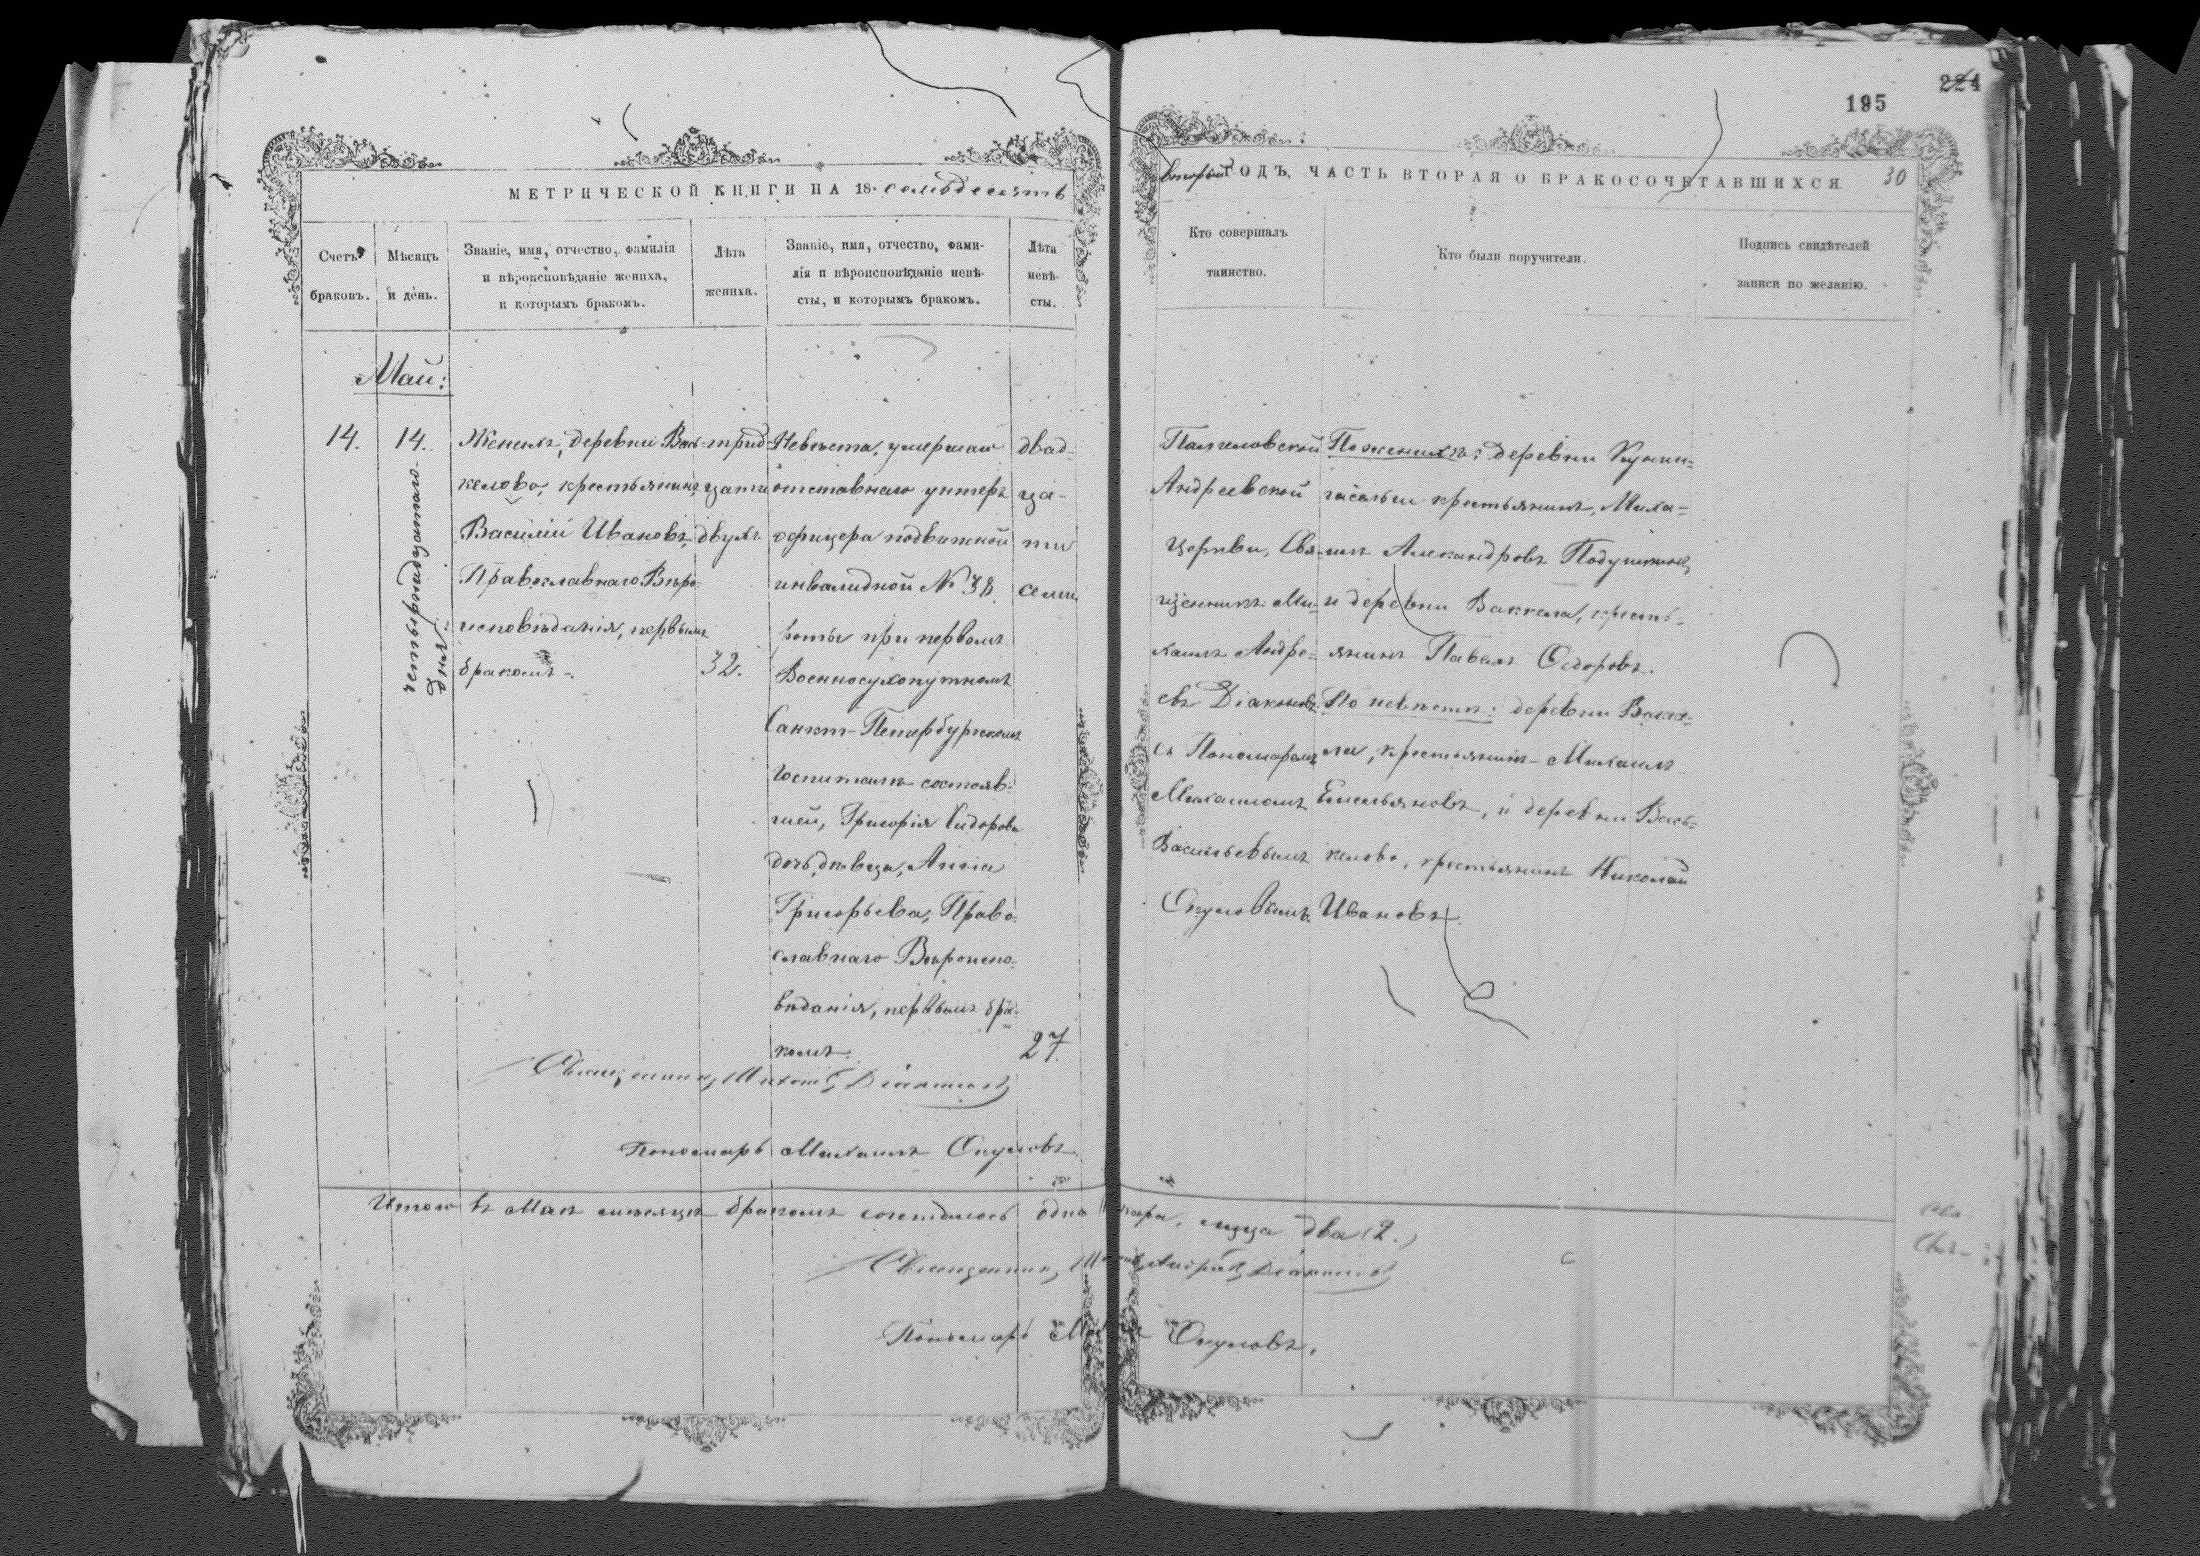 195
224
МЕТРИЧЕСКОЙ КНИГИ НА 18 семьдесятъ
второй ГОДЪ, ЧАСТЬ ВТОРАЯ О БРАКОСОЧЕТАВШИХСЯ 30
Счетъ
браковъ.
Мѣсяцъ
и день.
Званіе, имя, отчество, фамилія
и вѣроисповѣданіе жениха,
и которымъ бракомъ.
Лѣта
жениха.
Званіе, имя, отчество, фами-
лія и вѣроисповѣданіе невѣ-
сты, и которымъ бракомъ.
Лѣта
невѣ-
сты.
Кто совершалъ
таинство.
Кто были поручители.
Подпись свидѣтелей
записи по желанію.
Май:
14.
14.
четырнадцатаго
дня
Женихъ, деревни Вась-
келово, крестьянинъ
Василій Ивановъ,
Православнаго Вѣро-
исповѣданія, первымъ
бракомъ.
трид-
цати
двухъ
32.
Невѣста, умершаго
отставнаго унтеръ
офицера подвижной
инвалидной № 38
роты при первомъ
Военносухопутномъ
Санкт-Петербургскомъ
госпиталѣ состояв-
шей, Григорія Сидорова
дочь, дѣвица, Анна
Григорьева, Право-
славнаго Вѣроиспо-
вѣданія, первымъ бра-
комъ.
двад-
ца-
ти
семи
27
Андреевской
Церкви, Свя-
щенникъ Ми-
хаилъ Андре-
евъ Діаконовъ
съ Пономаремъ
Михаиломъ
Васильевымъ
Окуловымъ.
По женихѣ: деревни
крестьянинъ, Миха-
илъ Александровъ
и деревни Ваккела, кресть-
янинъ Павелъ Сидоровъ.
По невѣстѣ: деревни Вакке-
ла, крестьянинъ Михаилъ
Емельяновъ, и деревни Вась-
келово, крестьянинъ Николай
Ивановъ.
Священникъ Михаилъ Діаконовъ
Пономарь Михаилъ Окуловъ
Итого въ Маѣ мѣсяцѣ бракомъ сочеталось одна пара, лица два (2.)
Священникъ Михаилъ Андреевъ Діаконовъ
Пономарь Окуловъ.